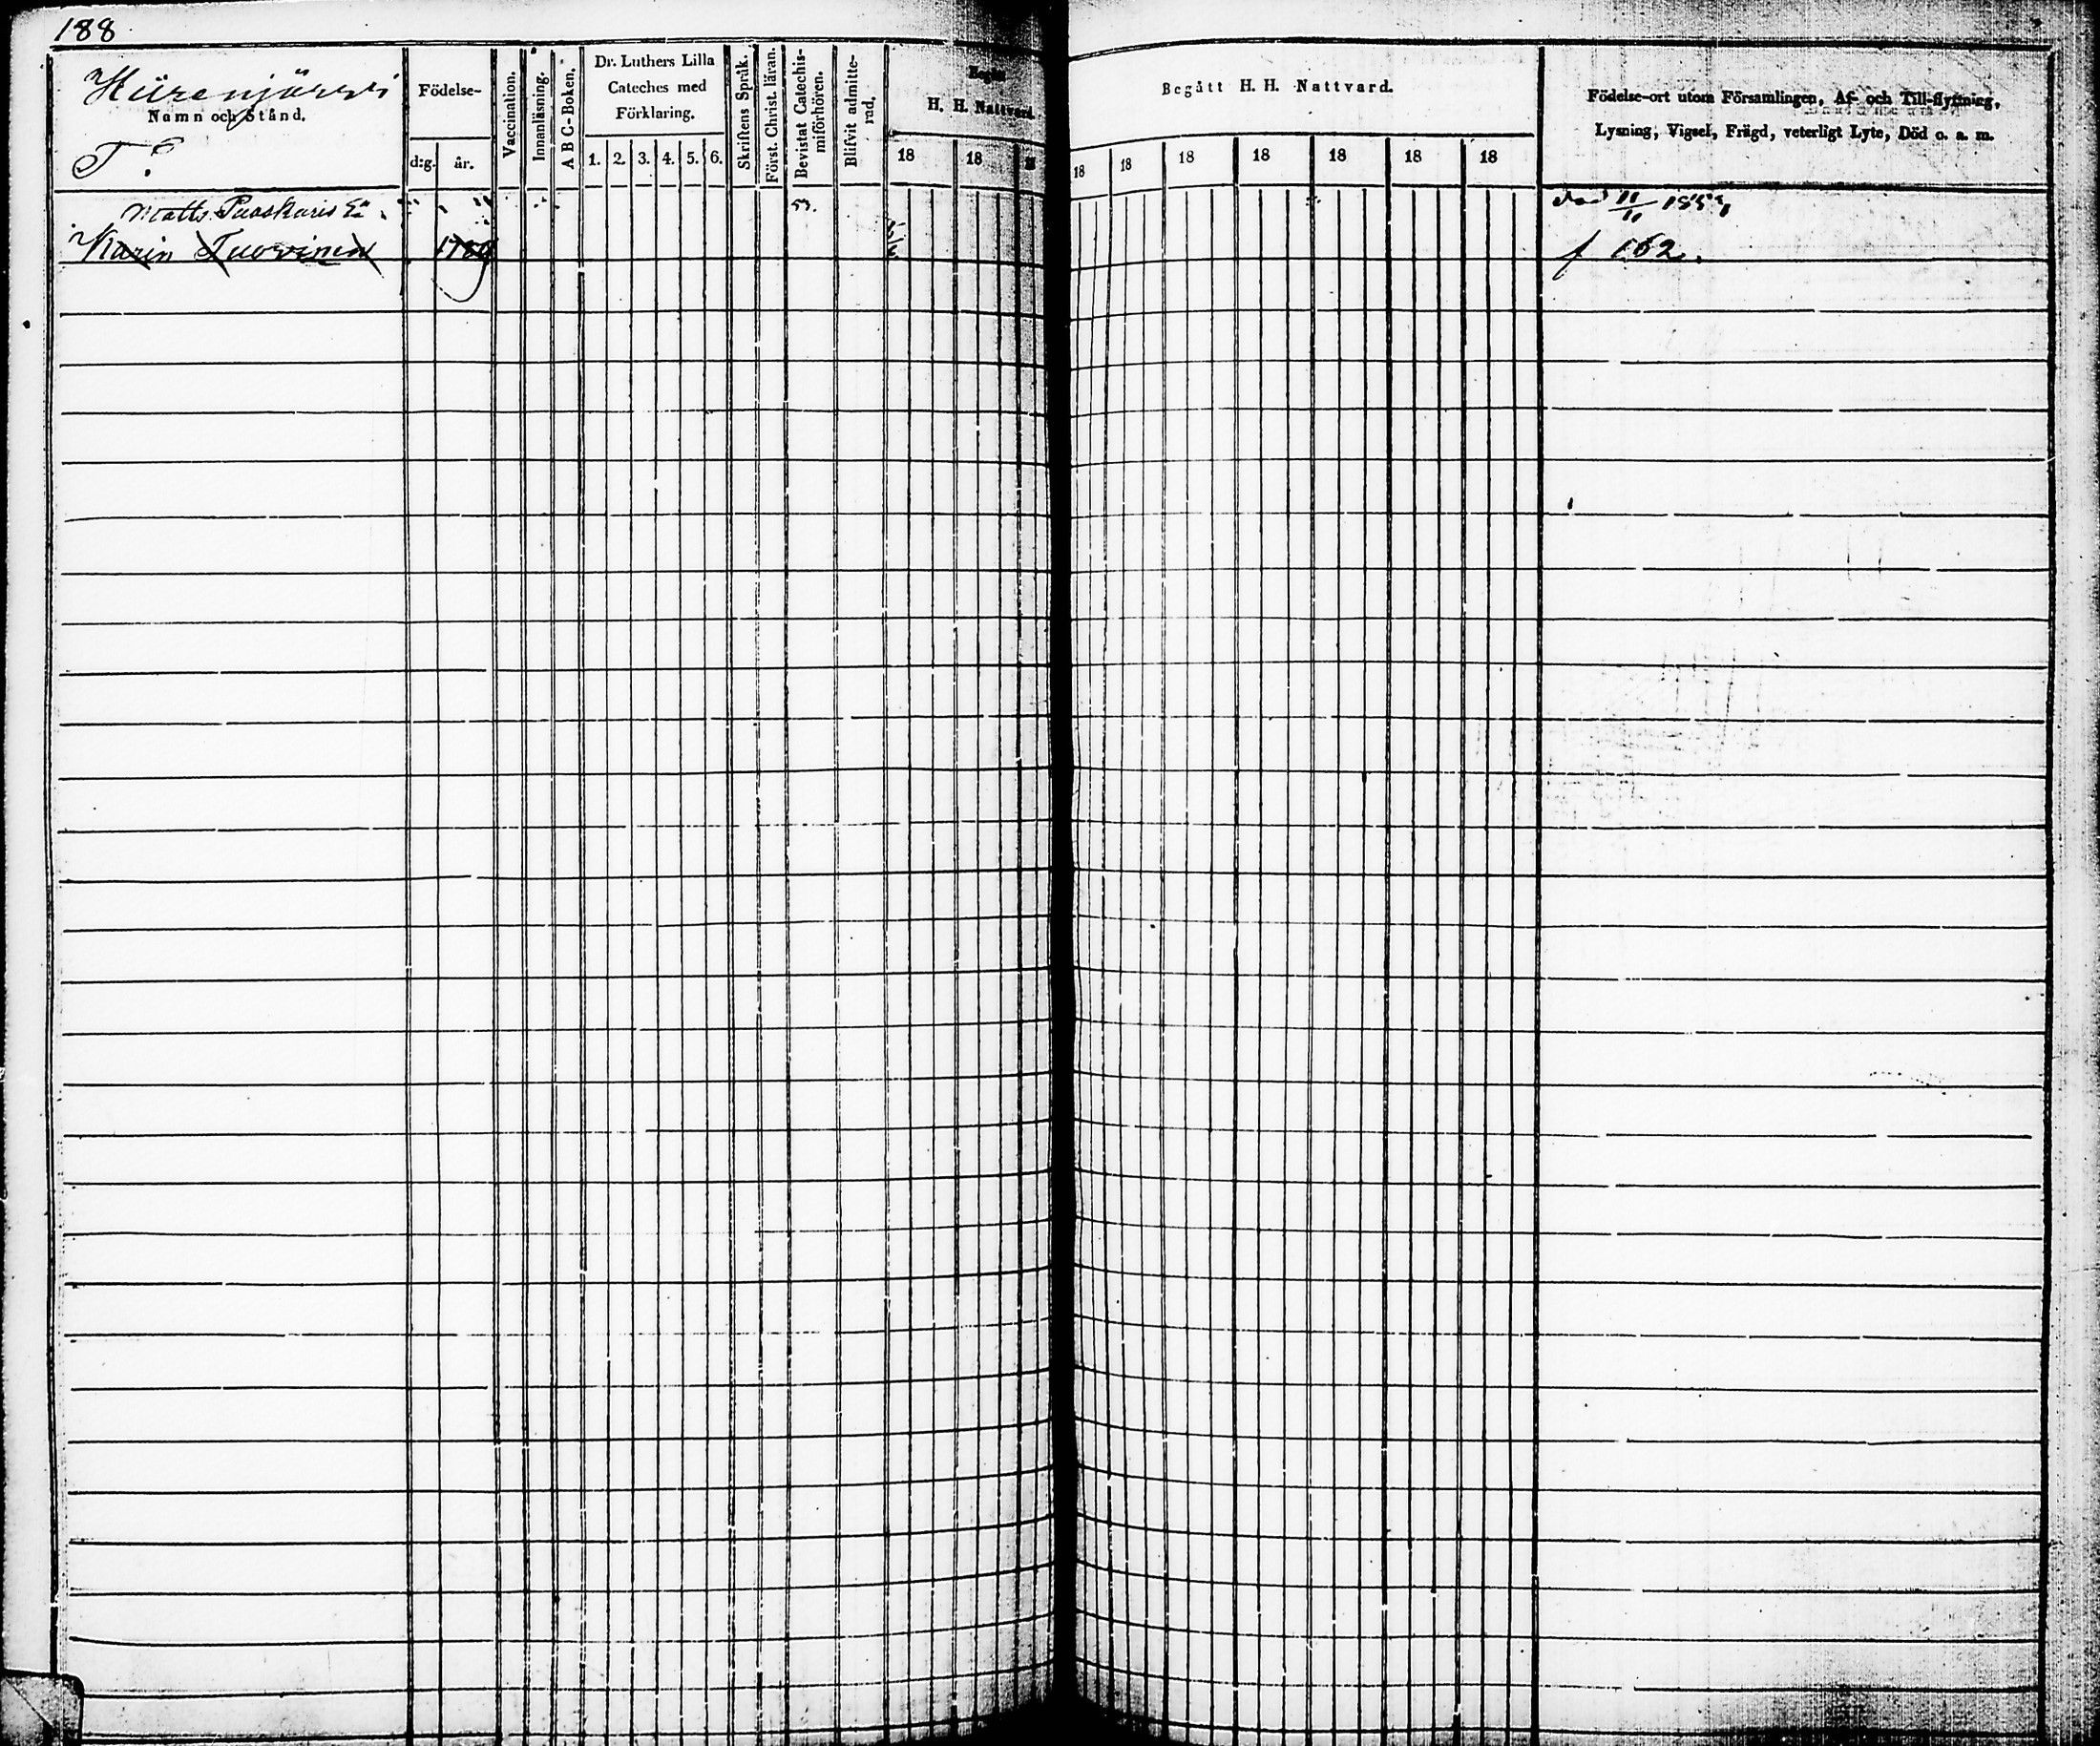 188
Hiirenjärvi
Namn och Stånd.
Födelse-
d:g. år.
Vaccination.
Innanläsning.
A B C-Boken.
Dr. Luthers Lilla
Cateches med
Förklaring.
1. 2. 3. 4. 5. 6.
Skriftens Språk.
Först. Christ. läran.
Bevistat Catechis-
miförhören.
Blifvit admitte-
rad.
Begått
H. H. Nattvard.
18 18 18
Begått H. H. Nattvard.
18 18 18 18 18 18 18
Födelse-ort utom Församlingen, Af- och Till-flyttning,
Lysning, Vigsel, Frägd, veterligt Lyte, Död o. a. m.
Matts 53.
Karin Tuovinen f 162.